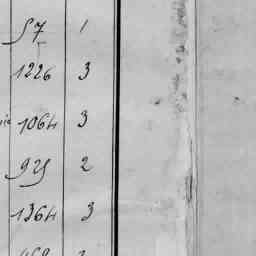 57 1
1226 3
1064 3
925 2
1364 3